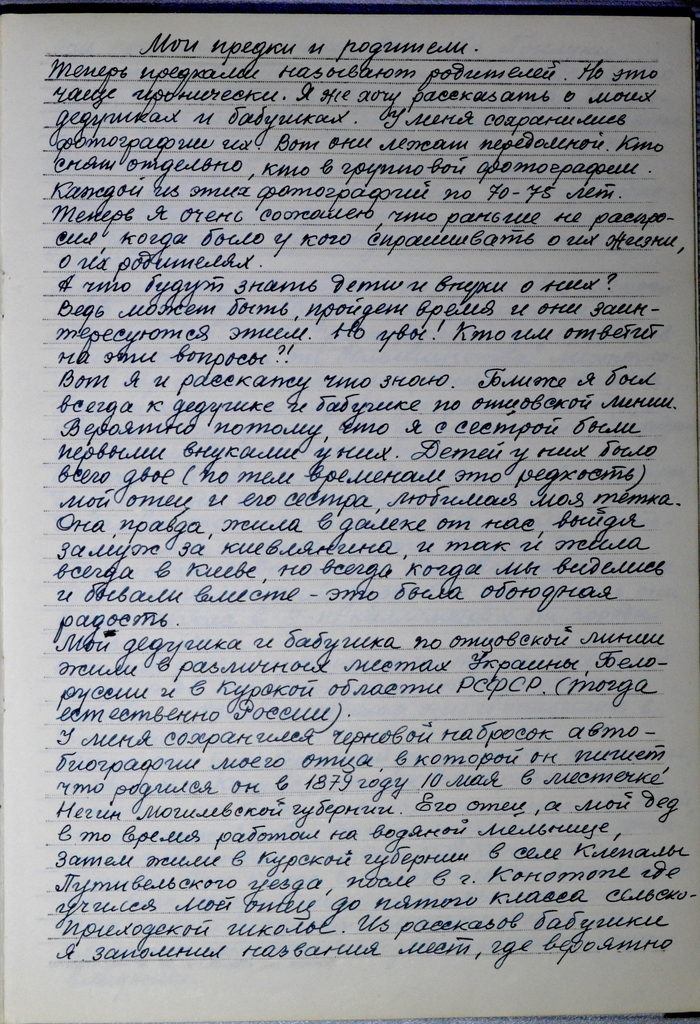 Мои предки и родители.
Теперь предками называют родителей. Но это
чаще иронически. Я же хочу рассказать о моих
дедушках и бабушках. У меня сохранились
фотографии их. Вот они лежат передомной. Кто
снят отдельно, кто в групповой фотографии.
Каждой из этих фотографий по 70-75 лет.
Теперь я очень сожалею, что раньше не распро-
сил, когда было у кого спрашивать о их жизни,
о их родителях.
А что будут знать дети и внуки о них?
Ведь может быть, пройдет время и они заин-
тересуются этим. Но увы! Кто им ответит
на эти вопросы?!
Вот я и расскажу что знаю. Ближе я был
всегда к дедушке и бабушке по отцовской линии.
Вероятно потому, что я с сестрой были
первыми внуками у них. Детей у них было
всего двое (по тем временам это редкость)
мой отец и его сестра, любимая моя тётка.
Она, правда, жила в далеке от нас, выйдя
замуж за киевлянина, и так и жила
всегда в Киеве, но всегда, когда мы виделись
и бывали вместе - это была обоюдная
радость.
Мой дедушка и бабушка по отцовской линии
жили в различных местах Украины, Бело-
руссии и в Курской области РСФСР. (тогда
естественно России).
У меня сохранился черновой набросок авто-
биографии моего отца, в которой он пишет
что родился он в 1879 году 10 мая в местечке
Негин Могилевской губернии. Его отец, а мой дед
в то время работал на водяной мельнице,
Затем жили в Курской губернии в селе Клепалы
Путивельского уезда, после в г. Конотопе где
учился мой отец до пятого класса сельско-
приходской школы. Из рассказов бабушки
я запомнил названия мест, где вероятно